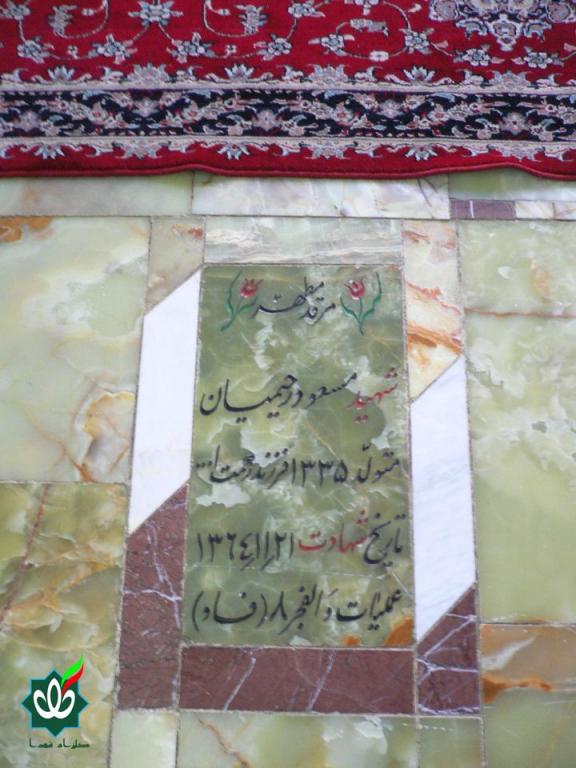 مرقد مطهر
شهید مسعود رحیمیان
متولد ۱۳۳۵ فرزند رحمت ا...
تاریخ شهادت ۱۳۶۴/۱۱/۲۱
عملیات والفجر ۸ (فاو)
گلزار شهدا